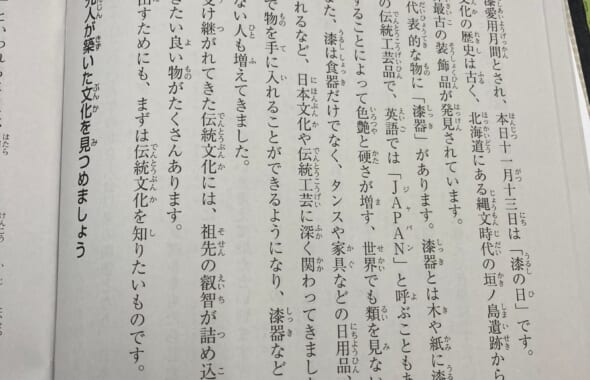 漆愛用月間とされ、本日十一月十三日は「漆の日」です。
文化の歴史は古く、北海道にある縄文時代の垣ノ島遺跡から
最古の装飾品が発見されています。
代表的な物に「漆器」があります。漆器とは木や紙に漆
することによって色艶と硬さが増す、世界でも類を見ない
の伝統工芸品で、英語では「JAPAN」と呼ぶこともあ
また、漆は食器だけでなく、タンスや家具などの日用品、
れるなど、日本文化や伝統工芸に深く関わってきまし
で物を手に入れることができるようになり、漆器など
ない人も増えてきました。
受け継がれてきた伝統文化には、祖先の叡智が詰め込
きたい良い物がたくさんあります。
出すためにも、まずは伝統文化を知りたいものです。
人が築いた文化を見つめましょう